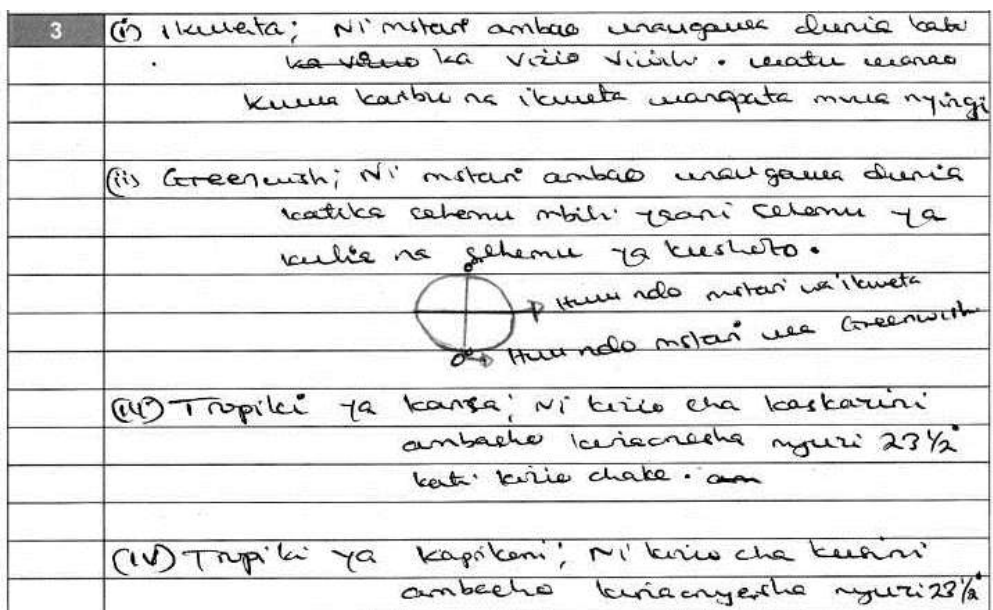 3 (i) Ikweta; Ni mstari ambao unaugawa dunia kati
ka vizio ka vizio viwili. watu wanao
kuwa karibu na ikweta wanapata mvua nyingi
(ii) Greenwish; Ni mstari ambao unaugawa dunia
katika sehemu mbili yaani sehemu ya
kulia na sehemu ya kushoto.
0°
Huu ndo mstari wa ikweta
0° Huu ndo mstari wa Greenwish
(iii) Tropiki ya kansa; Ni kizio cha kaskazini
ambacho nyuzi 23 1/2°
kati kizio chake.
(IV) Tropiki ya kapikoni; Ni kizio cha kusini
ambacho nyuzi 23 1/2°